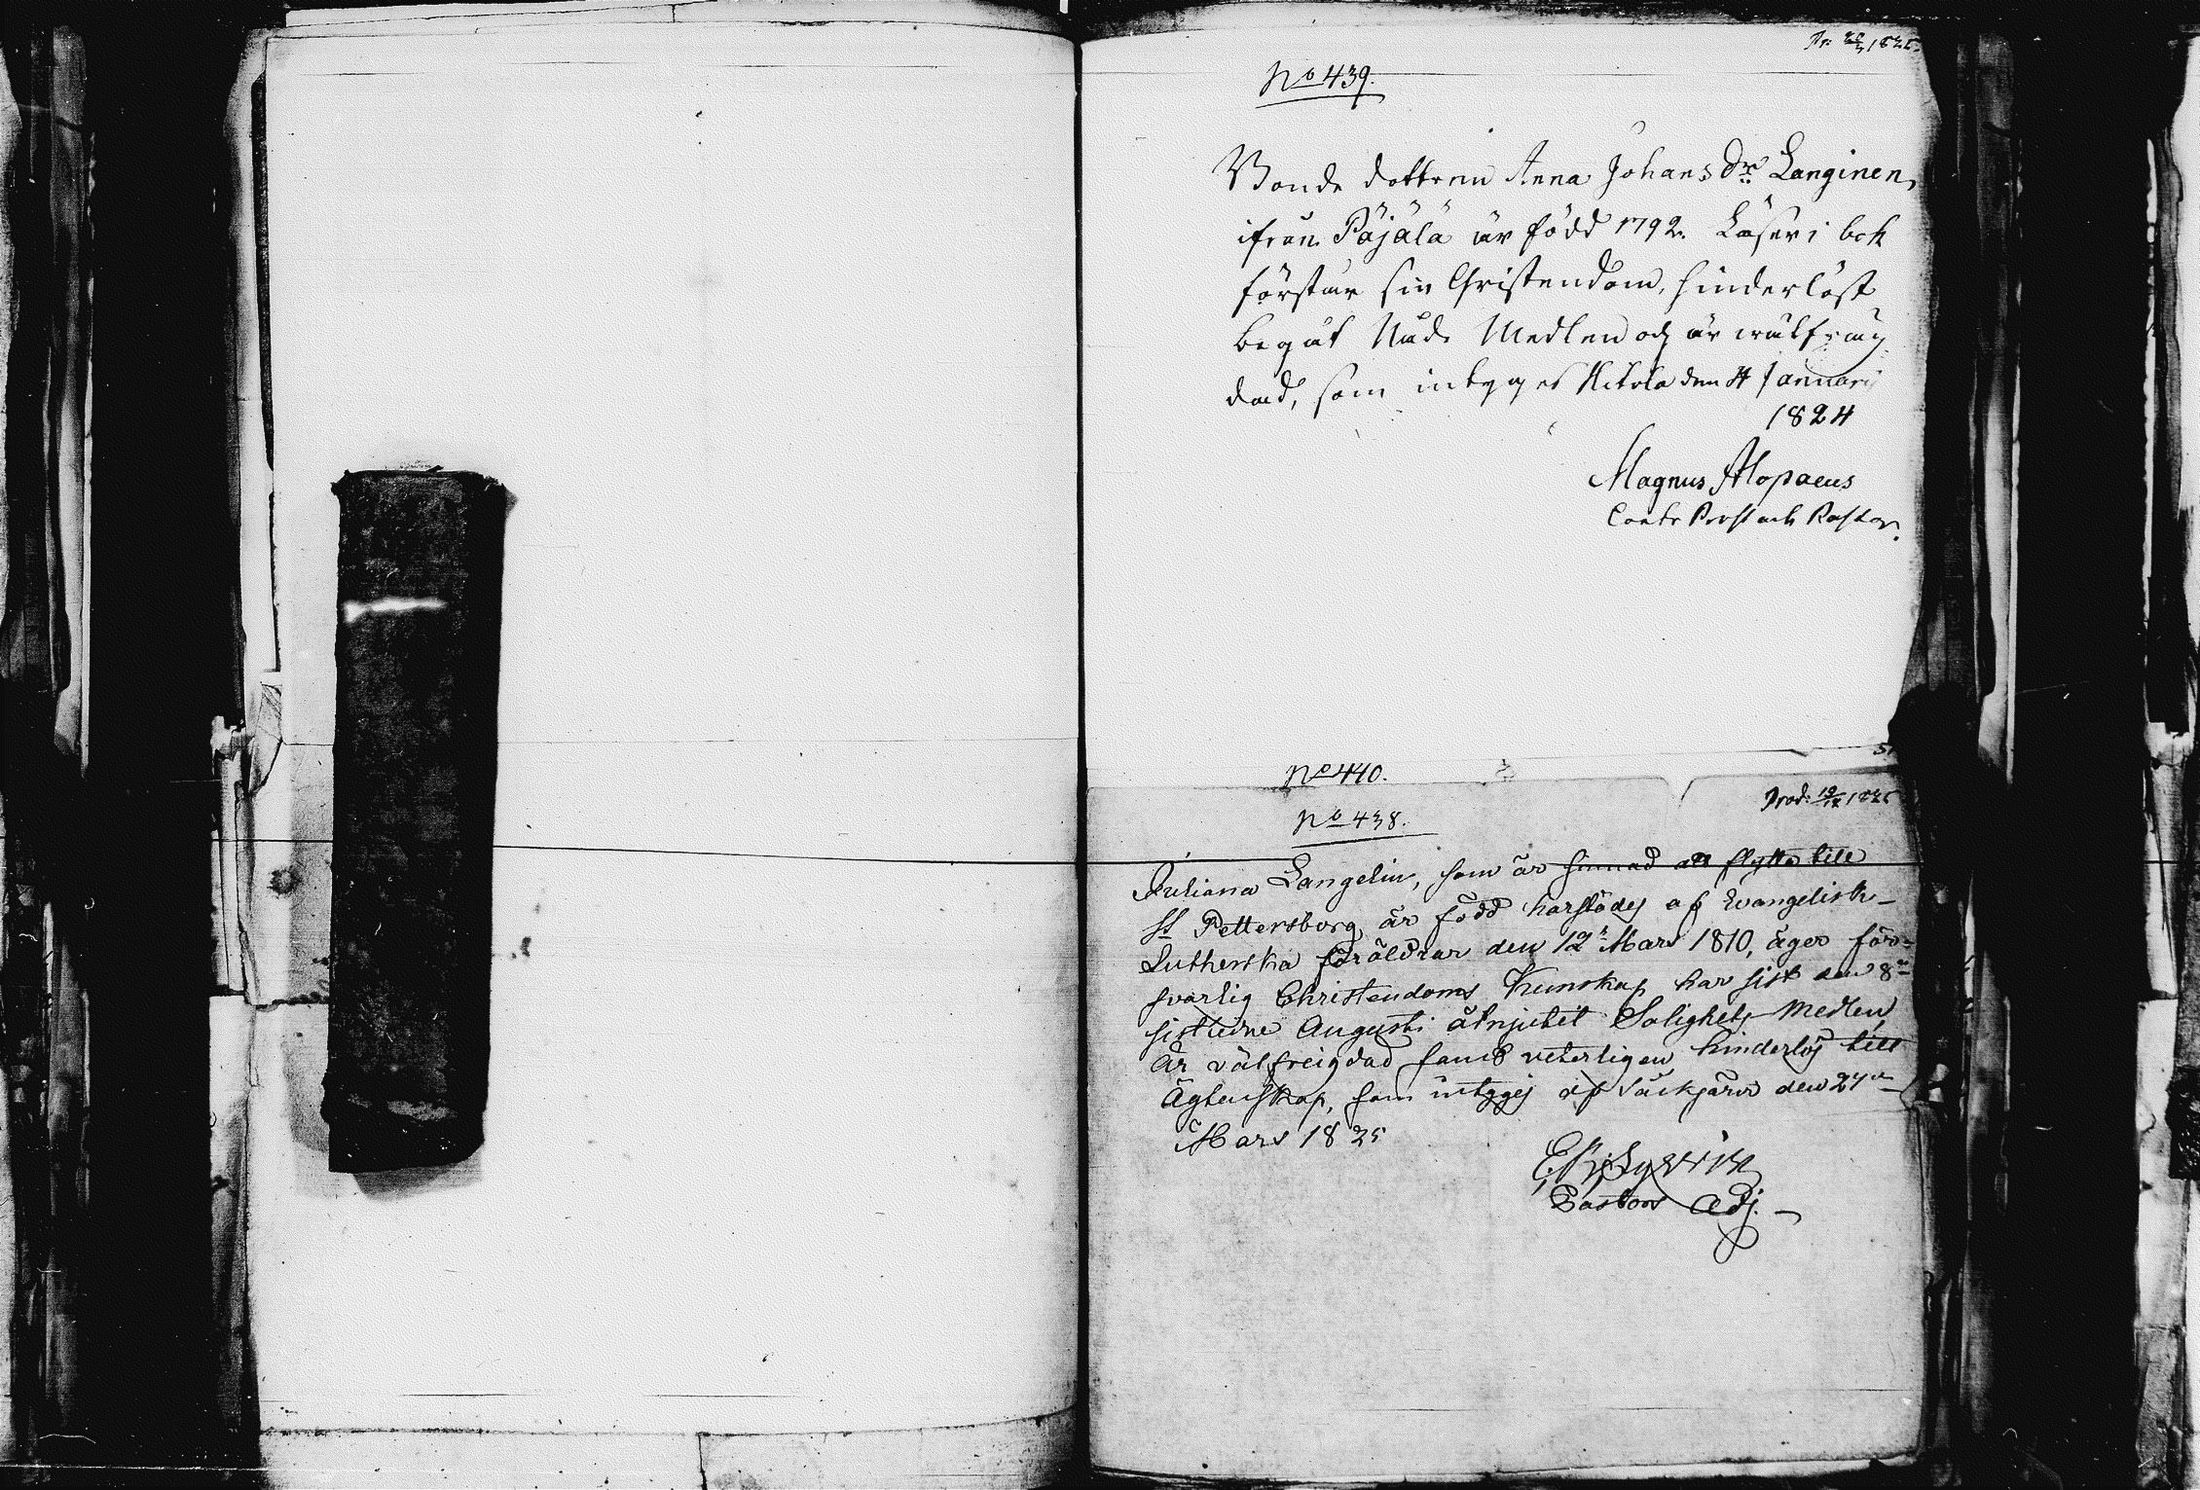 No 439.
Bonde dottren Anna Johans Dr Langinen,
ifrån Päjälä är född 1792. Läser i bok
förstår sin Christendom, hinderlöst
begåt Nåde Medlen och är wälfräig
dad, som intygas Hitola den 4 Januari
1824
Magnus Alopaeus
Contr Prost och Pastor.
No 440.
Prod:
No 438.
Juliana Langelin, som är sinnad att flytta till
St Pettersborg, är född härstädes af Evangelisk-
Lutherska föräldrar den 12n Mars 1810, äger för-
svarlig Christendoms Kunskap har sist den 8n
sistledne Augusti åtnjutit Salighets Medlen,
är välfreigdad samt veterligen hinderlös till
Ägtenskap, som intygas af Säckjärvi den 24n
Mars 1825
Pastors Adj.